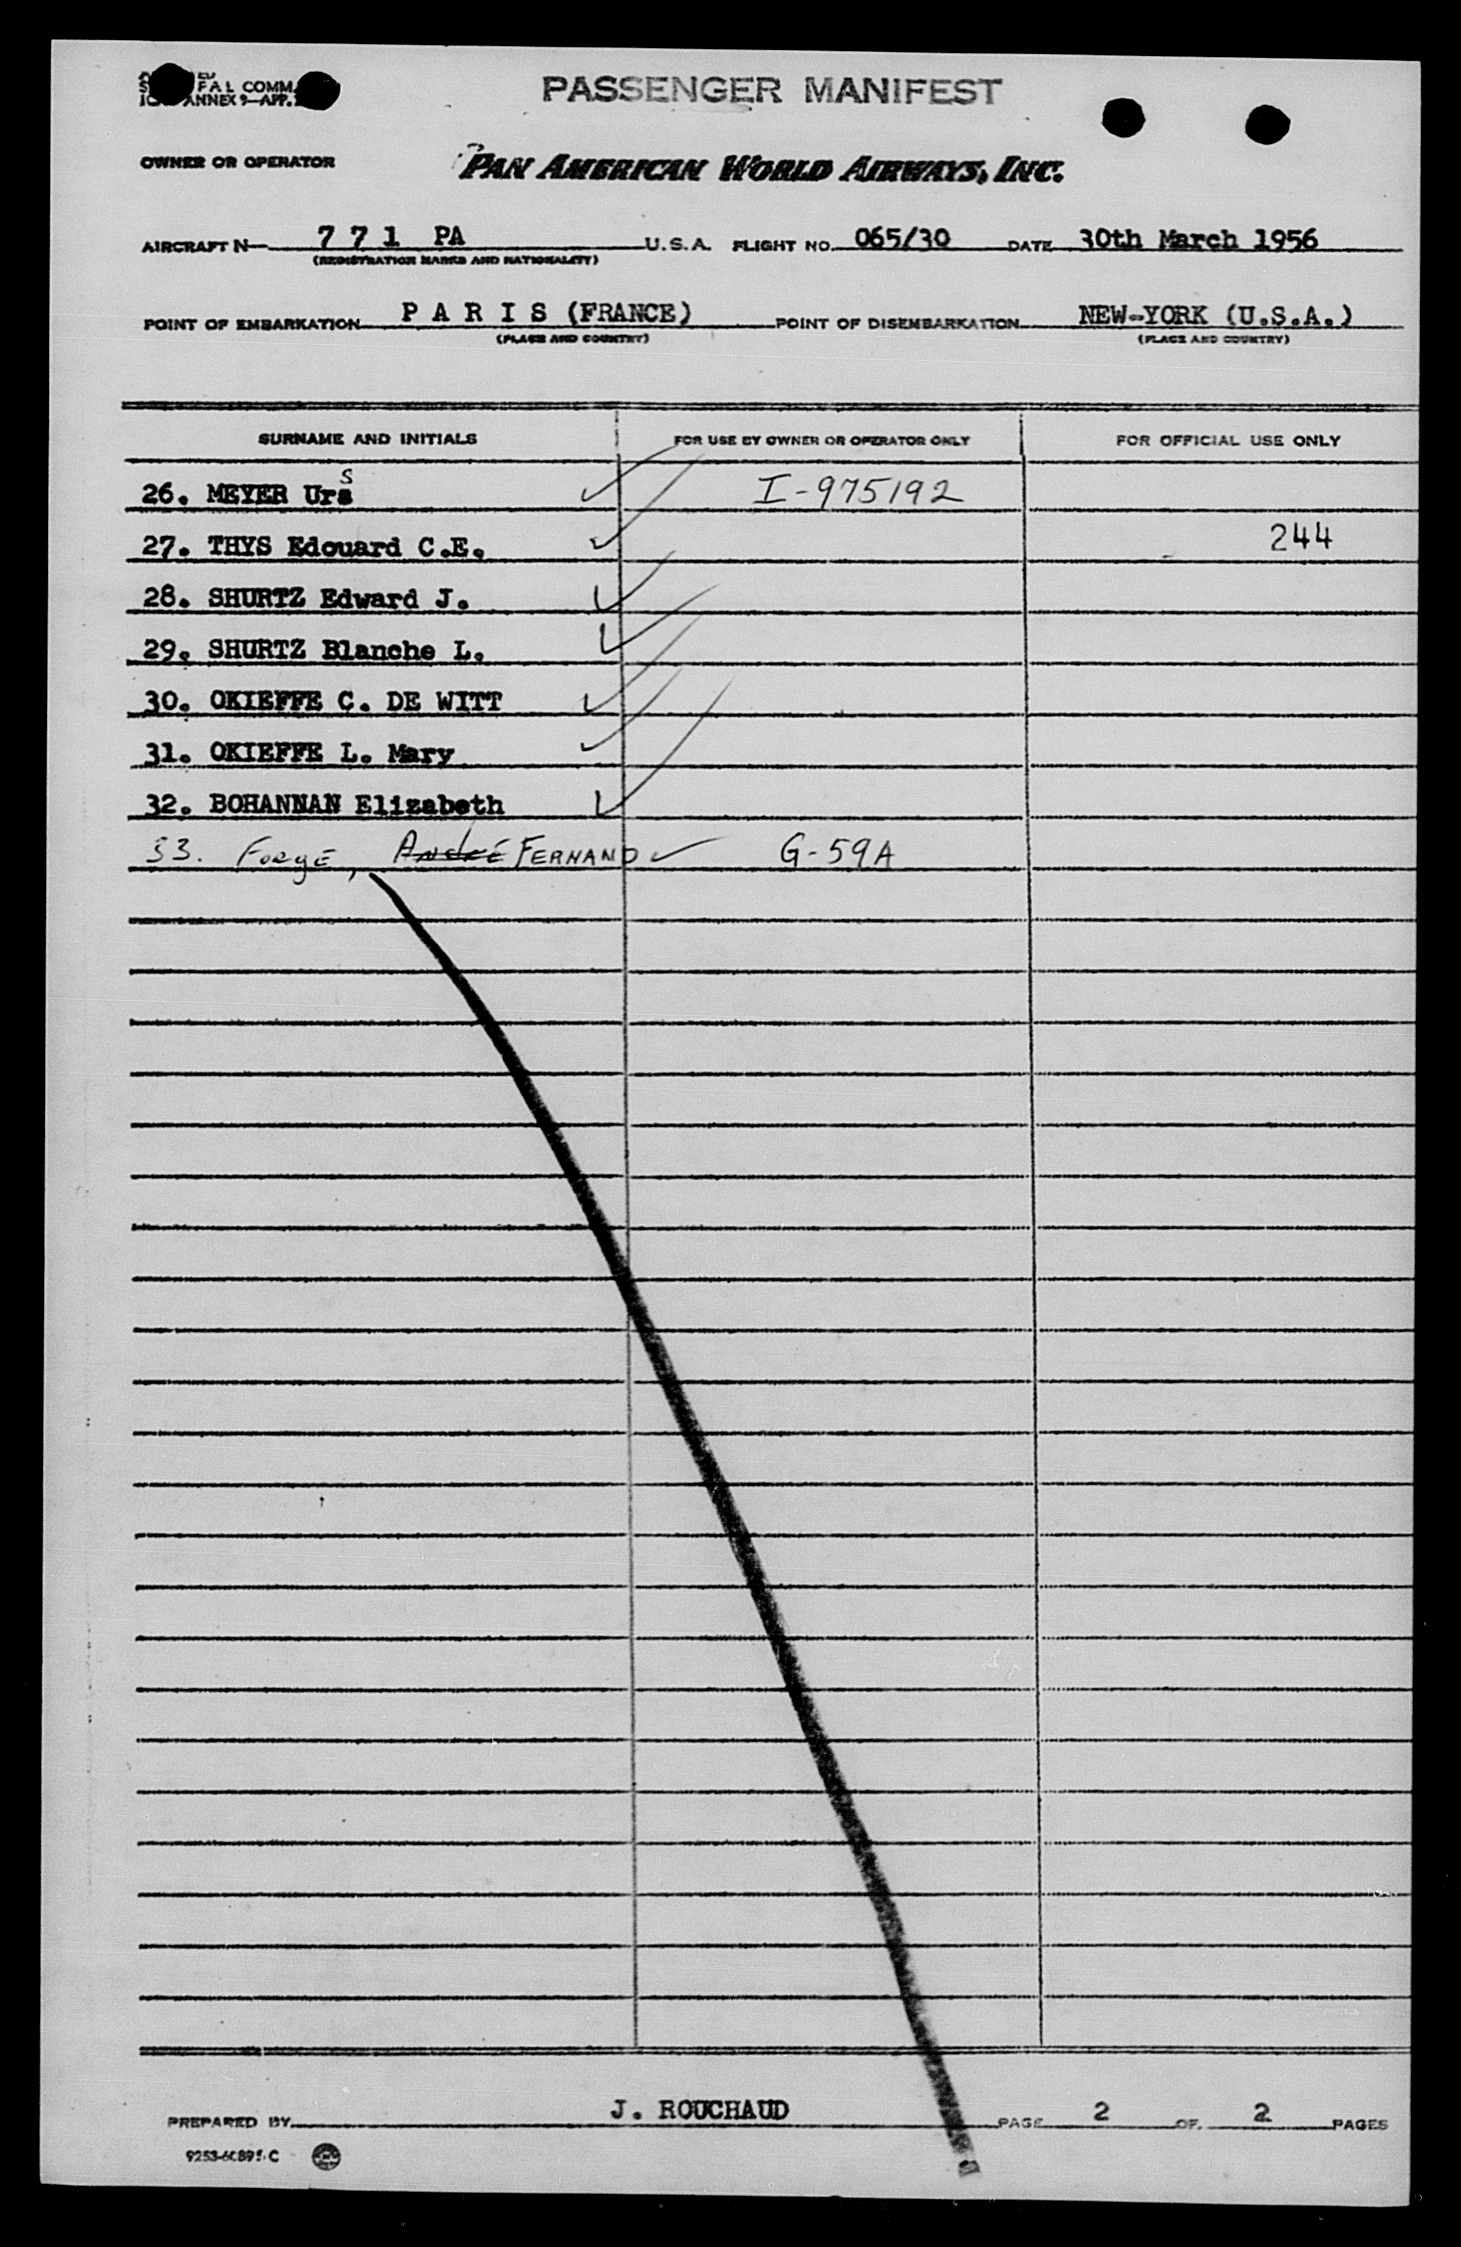 FAL COMM.
ANNEX 9—APP.
PASSENGER MANIFEST
OWNER OR OPERATOR PAN AMERICAN WORLD AIRWAYS, INC.
AIRCRAFT N— 7 7 1 PA U.S.A. FLIGHT NO. 065/30 DATE 30th March 1956
(REGISTRATION MARKS AND NATIONALITY)
POINT OF EMBARKATION P A R I S (FRANCE) POINT OF DISEMBARKATION NEW-YORK (U.S.A.)
(PLACE AND COUNTRY) (PLACE AND COUNTRY)
SURNAME AND INITIALS FOR USE BY OWNER OR OPERATOR ONLY FOR OFFICIAL USE ONLY
26. MEYER Urs I-975192
27. THYS Edouard C.E. 244
28. SHURTZ Edward J.
29. SHURTZ Blanche L.
30. OKIEFFE C. DE WITT
31. OKIEFFE L. Mary
32. BOHANNAN Elizabeth
33. Forgé, André FERNAND G-59A
PREPARED BY J. ROUCHAUD PAGE 2 OF 2 PAGES